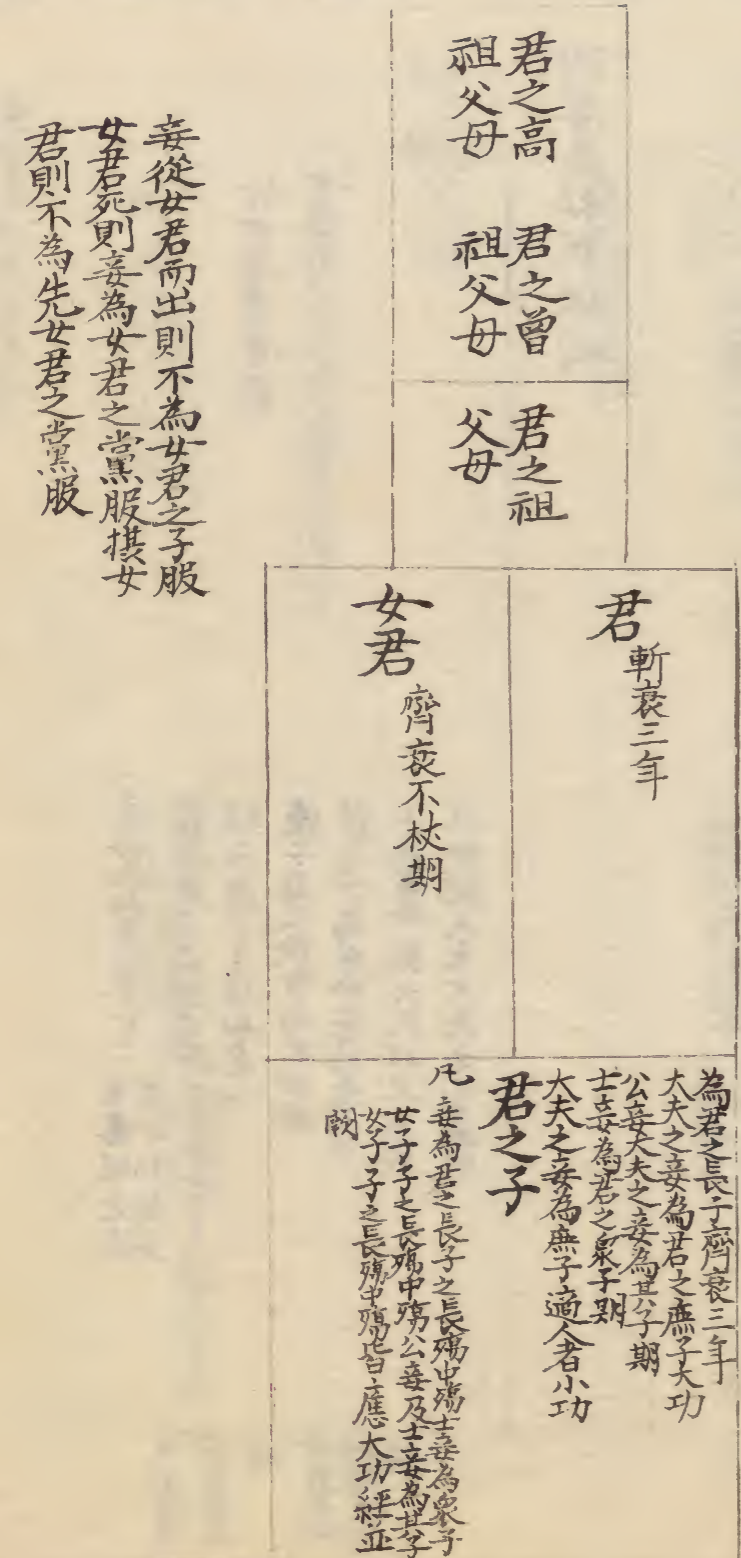 君之高
祖父母
君之曾
祖父母
君之祖
父母
君
斬衰三年
女君
齊衰不杖期
為君之長子齊衰三年
大夫之妾為君之庶子大功
公妾大夫之妾為其子期
士妾為君之衆子期
大夫之妾為庶子適人者小功
君之子
凡妾為君之長子之長殤中殤士妾為衆子
女子子之長殤中殤公妾及士妾為其子
女子子之長殤中殤皆應大功經並
闕
妾從女君而出則不為女君之子服
女君死則妾為女君之黨服攝女
君則不為先女君之黨服